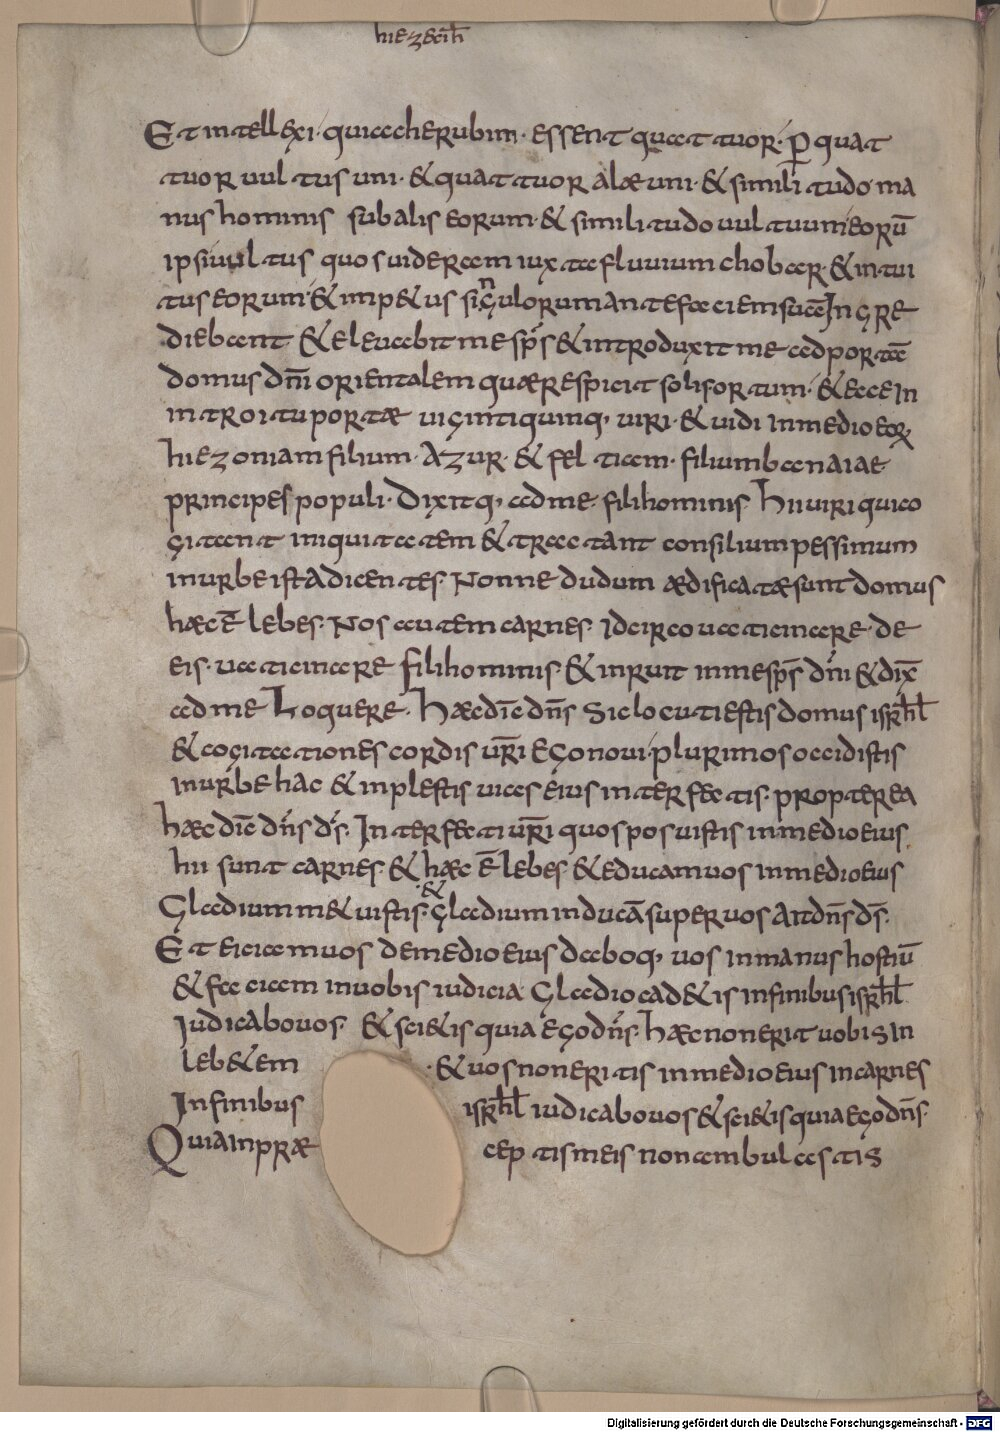 hiezecih̅
Et intellexi· quiacherubim· essent quattuor· ꝑ quat
tuor uultus uni· & quattuor alæ uni· & similitudo ma
nus hominis sub alis eorum· & similitudo uultuum eorū
ipsi uultus quos uideram iuxta fluuium chobar· & intui
tus eorum· & imp&us singulorum ante faciem suā Ingre
diebant & eleuabit me sp̄s & introduxit me ad portā
domus dn̄i orientalem quæ respicit solis ortum· & ecce in
introitu portæ uiginti quinq, uiri· & uidi in medio eoꝝ
hiezoniam filium· Azur· & feltiam· filium banaiae
principes populi· Dixitq, ad me· fili hominis· Hii uiri qui co
gitant iniquitatem & tractant consilium pessimum
in urbe ista dicentes· Nonne dudum ædificatæ sunt domus
hæc ē lebes· Nos autem carnes· Idcirco uaticinare· de
eis· uaticinare fili hominis· & inruit in me sp̄s dn̄i & dix̄
ad me Loquere· Hæc dīc dn̄s Sic locuti estis domus isrh̅l
& cogitationes cordis ur̄i ego noui· plurimos occidistis
in urbe hac & inplestis uias eius interfectis· propterea
hæc dīc dn̄s ds̄· Interfecti ur̄i quos posuistis in medio eius
hii sunt carnes· & hæc ē lebes· & educam uos in medio eius
Gladium m&uistis· & gladium inducā super uos ait dn̄s ds̄·
Et eiciam uos de medio eius daboq, uos in manus hostiū
& faciam in uobis iudicia Gladio cad&is in finibus isrh̅l
Iudicabo uos· & sci&is quia ego dn̄s· hæc non erit uobis in
leb&em · & uos non eritis in medio eius in carnes
In finibus isrh̅l iudicabo uos & sci&is quia ego dn̄s·
Quia in præ ceptis meis non ambulastis
Digitalisierung gefördert durch die Deutsche Forschungsgemeinschaft - DFG